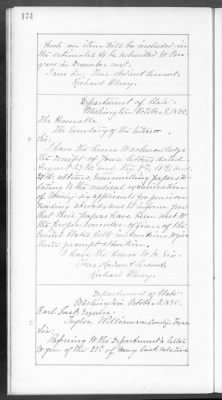 174
such an item will be included in
the estimates to be submitted to Con-
gress in December next.
I am Sir, Your obedient servant,
Richard Olney.
Department of State.
Washington, October 8, 1895.
The Honorable
The Secretary of the Interior.
Sir:
I have the honor to acknowledge
the receipt of your letters dated
August 27th and the
to the medical examination
of applicants for pension
residing abroad and to inform you
that these papers have been sent to
the proper consular officers of the
United States with instructions to give
them prompt attention.
I have the honor to be Sir,
Your obedient servant,
Richard Olney.
Department of State.
Washington, October 8, 1895.
Esquire,
Taylor, Williamson County, Texas.
Sir:
Referring to the Department's letter
to you of the 27th of May last relative